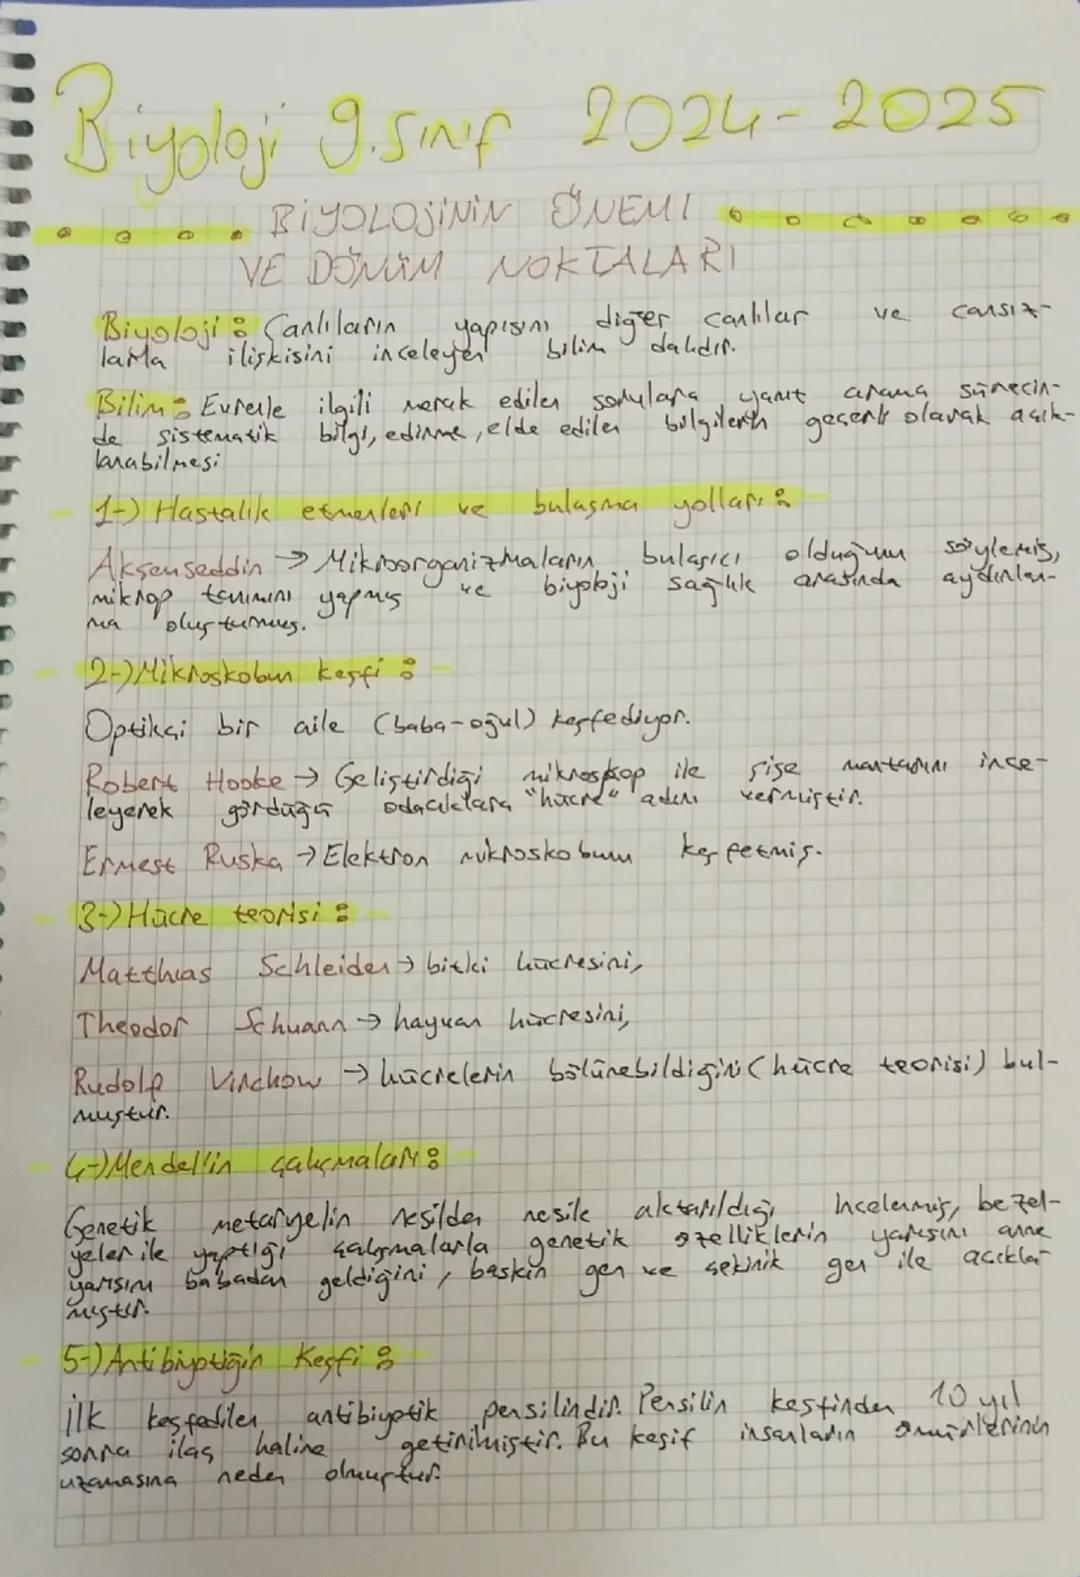 Biyoloji 9.Sınıf 2024-2025
BİYOLOJİNİN ÖNEMİ
VE DÖNÜM NOKTALARI
Biyoloji: Canlıların yapısını diğer canlılar ve cansız-
larla ilişkisini inceleyen bilim dalıdır.
Bilim: Evrenle ilgili merak edilen sorulara yanıt arama sürecin-
de sistematik bilgi, edinme, elde edilen bilgilerin geçerli olarak açık-
lanabilmesi
1-) Hastalık etmenleri ve bulaşma yolları:
Akşemseddin → Mikroorganizmaların bulaşıcı olduğunu söylemiş,
mikrop tanımını yapmış ve biyoloji sağlık arasında aydınlan-
ma oluşturmuş.
2-) Mikroskobun keşfi:
Optikçi bir aile (baba-oğul) keşfediyor.
Robert Hooke → Geliştirdiği mikroskop ile şişe mantarını ince-
leyerek gördüğü odacıklara "hücre" adını vermiştir.
Ernest Ruska → Elektron mikroskobunu keşfetmiş.
3-) Hücre teorisi:
Matthias Schleiden → bitki hücresini,
Theodor Schuann → hayvan hücresini,
Rudolf Virchow → hücrelerin bölünebildiğini (hücre teorisi) bul-
muştur.
4-) Mendel'in çalışmaları:
Genetik metaryelin nesilden nesile aktarıldığı incelenmiş, bezel-
yeler ile yaptığı çalışmalarla genetik özelliklerin yarısını anne
yarısını babadan geldiğini, baskın gen ve çekinik gen ile açıkla
mıştır.
5-) Antibiyotiğin Keşfi:
İlk keşfedilen antibiyotik pensilindir. Pensilin keşfinden 10 yıl
sonra ilaç haline getirilmiştir. Bu keşif insanların ömürlerinin
uzamasına neden olmuştur.